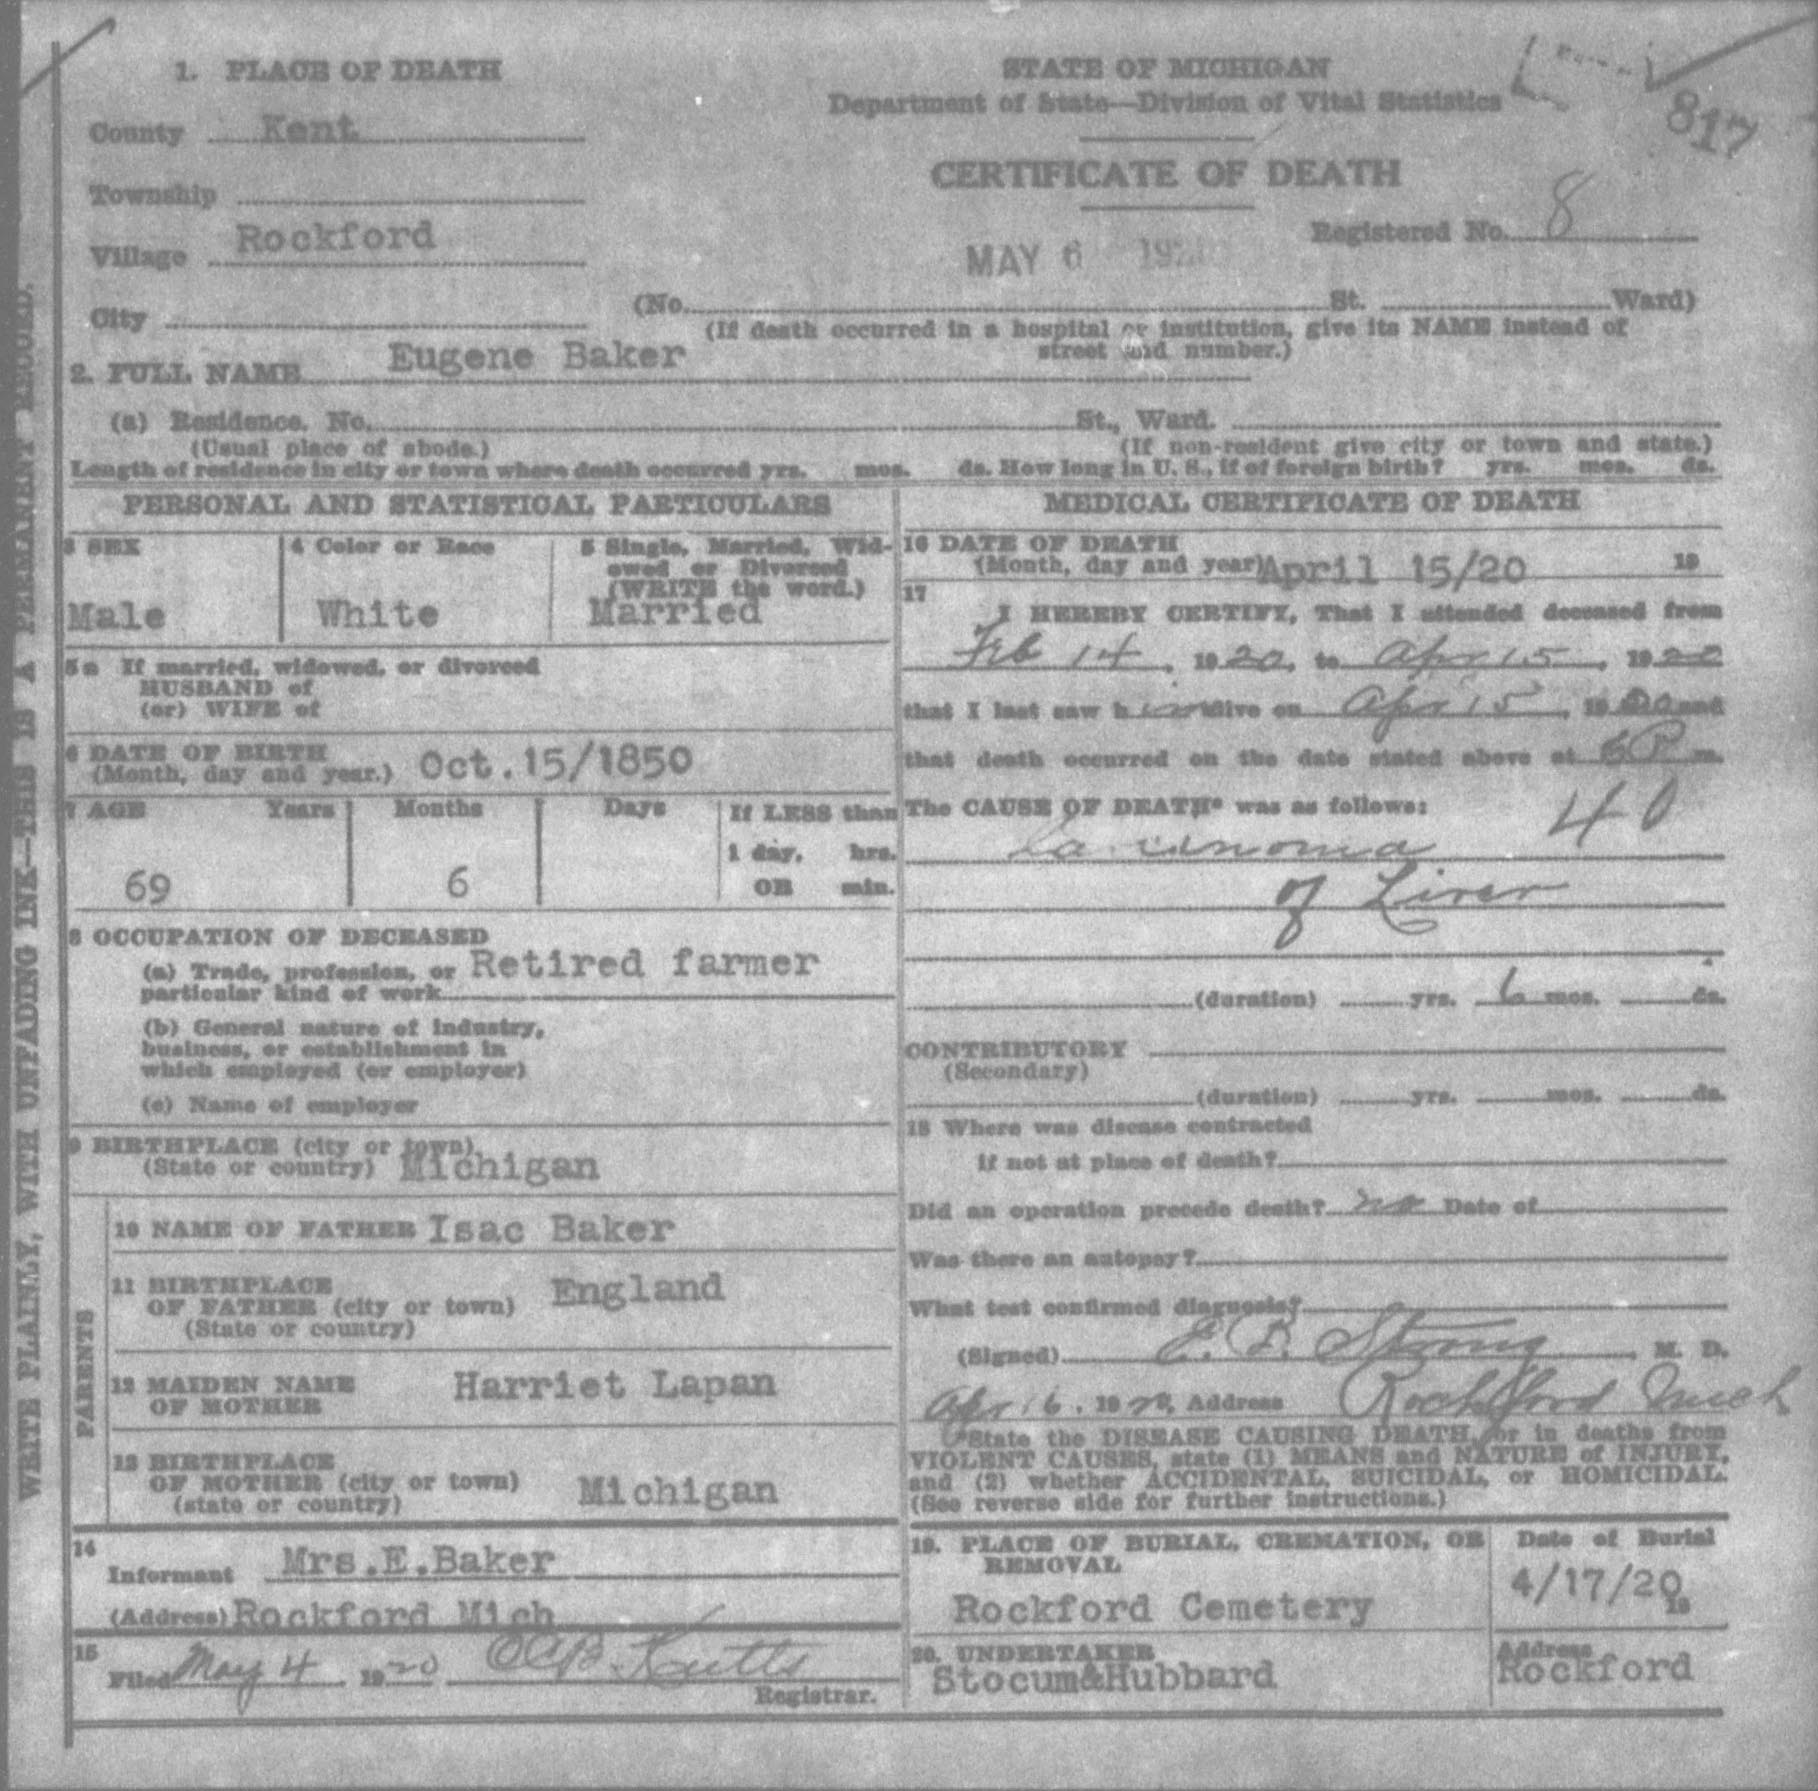 1. PLACE OF DEATH
County Kent
Township
Village Rockford
City
STATE OF MICHIGAN
Department of State—Division of Vital Statistics
817
CERTIFICATE OF DEATH
Registered No. 8
MAY 6
(No. St. Ward)
(If death occurred in a hospital or institution, give its NAME instead of
street and number.)
2. FULL NAME Eugene Baker
(a) Residence. No. St., Ward.
(Usual place of abode.) (If non-resident give city or town and state.)
Length of residence in city or town where death occurred yrs. mos. ds. How long in U. S., if of foreign birth? yrs. mos. ds.
PERSONAL AND STATISTICAL PARTICULARS
3 SEX
Male
4 Color or Race
White
5 Single, Married, Wid-
owed or Divorced
(WRITE the word.)
Married
5a If married, widowed, or divorced
HUSBAND of
(or) WIFE of
6 DATE OF BIRTH
(Month, day and year.) Oct.15/1850
7 AGE Years Months Days If LESS than
1 day, hrs.
69 6 OR min.
8 OCCUPATION OF DECEASED
(a) Trade, profession, or Retired farmer
particular kind of work
(b) General nature of industry,
business, or establishment in
which employed (or employer)
(c) Name of employer
9 BIRTHPLACE (city or town)
(State or country) Michigan
PARENTS
10 NAME OF FATHER Isac Baker
11 BIRTHPLACE
OF FATHER (city or town) England
(State or country)
12 MAIDEN NAME Harriet Lapan
OF MOTHER
13 BIRTHPLACE
OF MOTHER (city or town) Michigan
(state or country)
14
Informant Mrs.E.Baker
(Address) Rockford Mich
15
Filed May 4 1920
Registrar.
MEDICAL CERTIFICATE OF DEATH
16 DATE OF DEATH
(Month, day and year) April 15/20 19
17
I HEREBY CERTIFY, That I attended deceased from
Feb 14, 1920, to Apr 15, 1920
that I last saw him alive on Apr 15, 1920 and
that death occurred on the date stated above at P m.
The CAUSE OF DEATH* was as follows: 40
Carcinoma
of Liver
(duration) yrs. 6 mos. ds.
CONTRIBUTORY
(Secondary)
(duration) yrs. mos. ds.
18 Where was disease contracted
if not at place of death?
Did an operation precede death? no Date of
Was there an autopsy?
What test confirmed diagnosis?
(Signed) Strong M. D.
Apr 16, 1920, Address Rockford Mich
*State the DISEASE CAUSING DEATH, or in deaths from
VIOLENT CAUSES, state (1) MEANS and NATURE of INJURY,
and (2) whether ACCIDENTAL, SUICIDAL, or HOMICIDAL.
(See reverse side for further instructions.)
19. PLACE OF BURIAL, CREMATION, OR
REMOVAL
Rockford Cemetery
Date of Burial
4/17/20
19
20. UNDERTAKER
Stocum&Hubbard
Address
Rockford
WRITE PLAINLY, WITH UNFADING INK—THIS IS A PERMANENT RECORD.